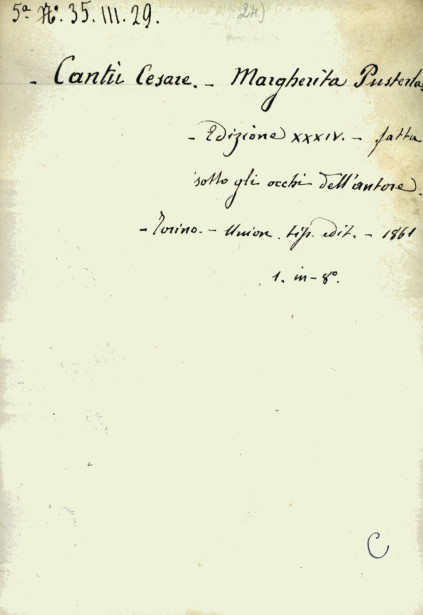 5ª A. 35. III. 29. 24)
- Cantù Cesare. - Margherita Pusterla.
- Edizione XXXIV. - fatta
sotto gli occhi dell'autore.
- Torino. - Unione tip. edit. - 1861
1. in-8°.
C